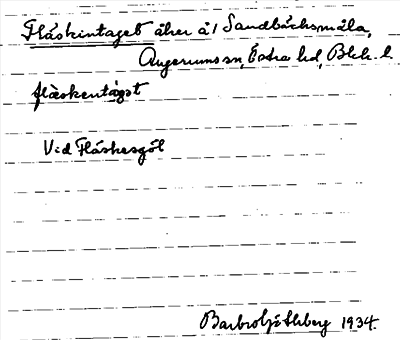 Fläskintaget åker å 1 Sandbäcksmåla,
Augerums sn, Östra hd, Blek. l.
fläskentágət
Vid Fläskesgöl
Barbro 1934.